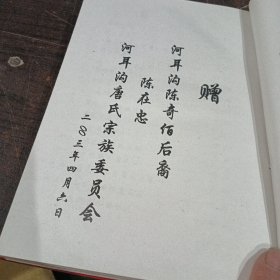 赠
河耳沟陈奇佰后裔
陈在忠
河耳沟唐氏宗族委员会
二〇〇三年四月六日